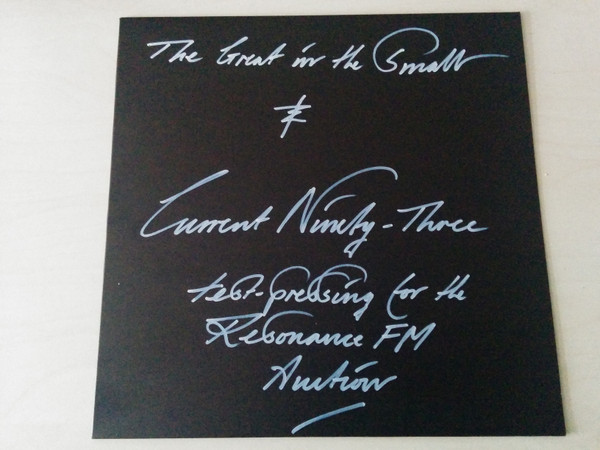 The Great in the Small
Current Ninety-Three
test-pressing for the
Resonance FM
Auction